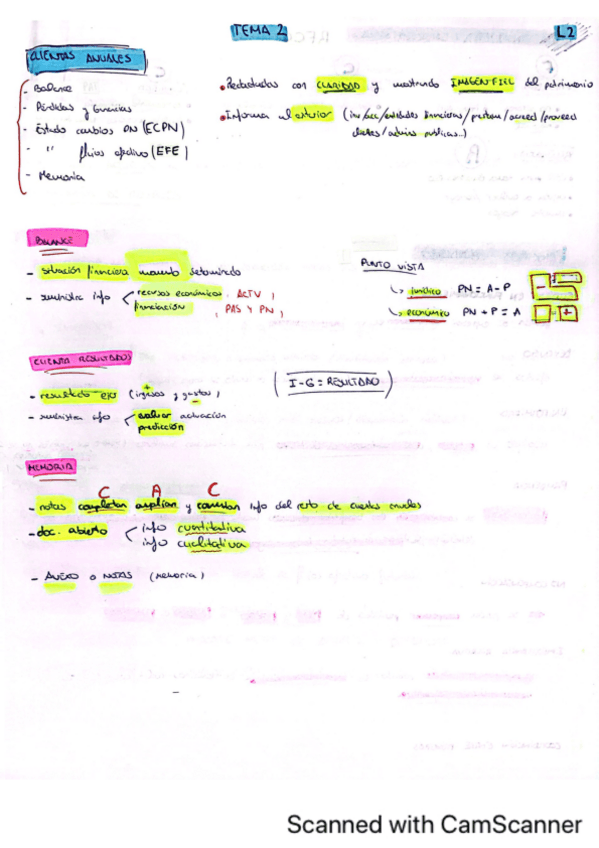 TEMA 2
L2
CUENTAS ANUALES
- Balance
- Pérdidas y Ganancias
- Estado cambios PN (ECPN)
- " flujos efectivo (EFE)
- Memoria
• Redactadas con CLARIDAD y mostrando IMAGEN FIEL del patrimonio
• Informa al exterior (inv/acc/entidades financieras/prestam/acreed/proveed
clientes/admins publicas...)
BALANCE
- situación financiera momento determinado
- suministra info recursos económicos, ACTV
financiación, PAS Y PN
PUNTO VISTA
↳ jurídico PN = A - P
↳ económico PN + P = A
CUENTA RESULTADOS
- resultado ejer (ingresos y gastos)
+ -
(I - G = RESULTADO)
- suministra info evaluar actuación
predicción
MEMORIA
C A C
- notas completan amplían y comentan info del resto de cuentas anuales
- doc. abierto info cuantitativa
info cualitativa
- ANEXO o NOTAS (Memoria)
Scanned with CamScanner